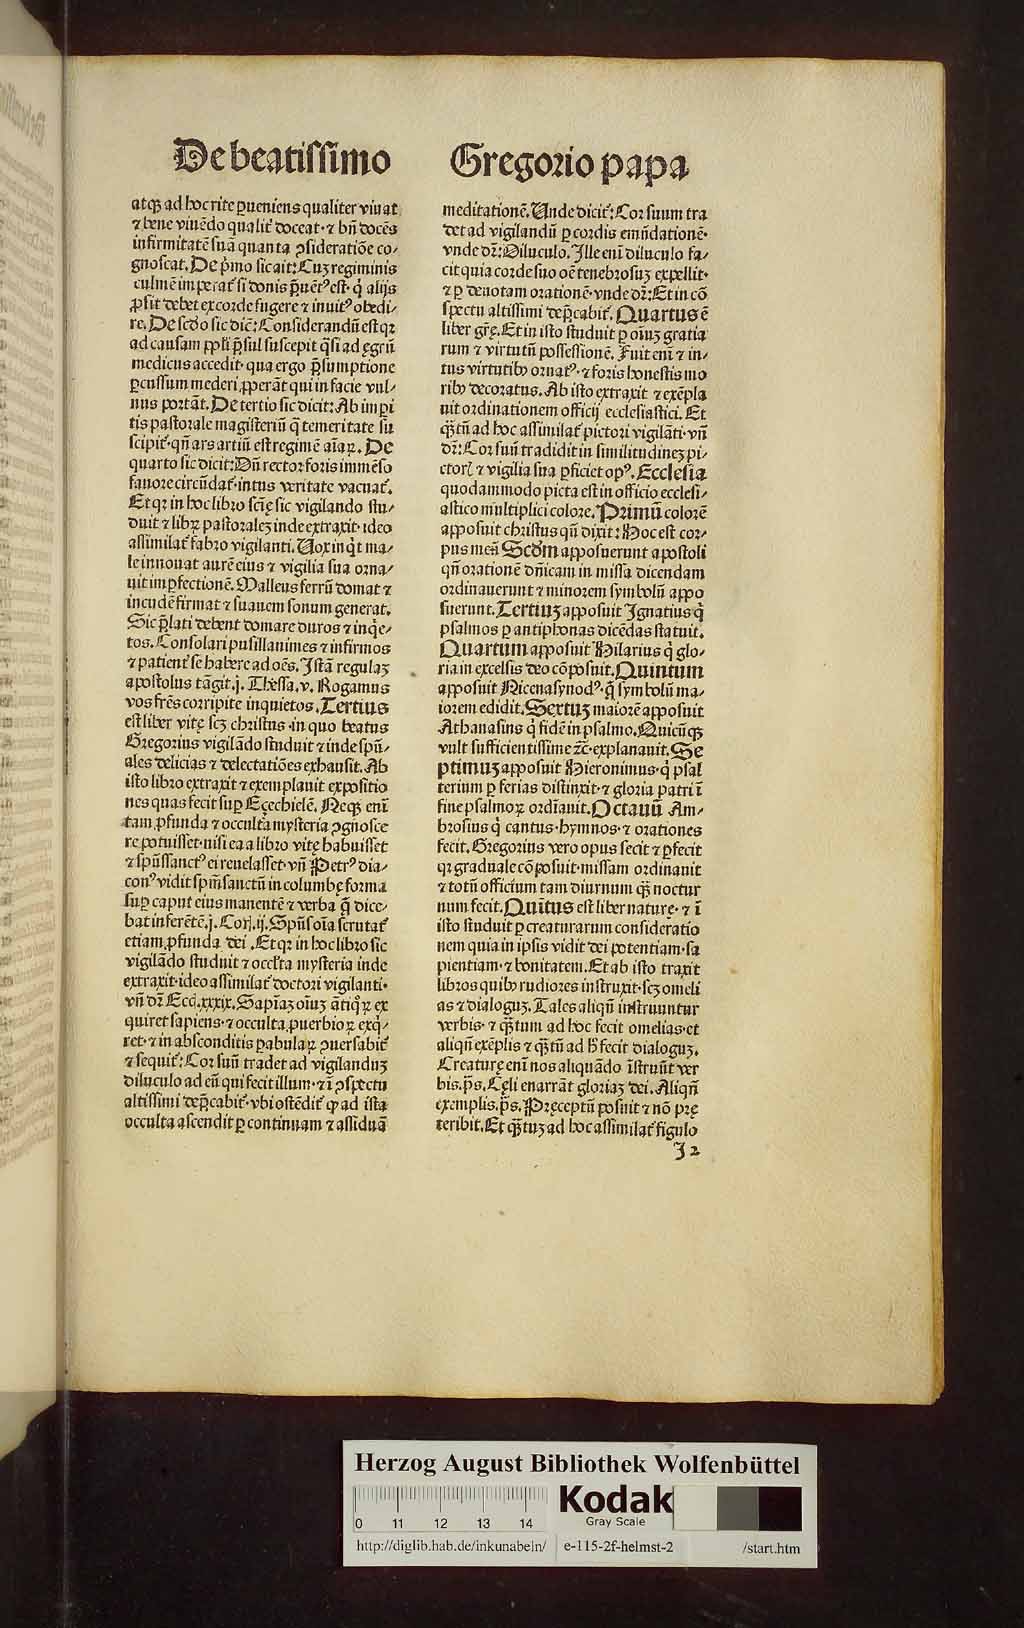 De beatissimo Gregorio papa
atqꝫ ad hoc rite ꝑueniens qualiter viuat
⁊ bene viuēdo qualit̃ doceat· ⁊ bn̄ docēs
infirmitatē suā quanta ꝯsideratiōe co⸗
gnoscat. De p̃mo sic ait: Cuꝫ regiminis
culmē imperat̃ si donis p̃uēt⁹ est· q̇ alijs
ꝓsit debet ex corde fugere ⁊ inuit⁹ obedi⸗
re. De scd̄o sic dic̄: Considerandū est qꝛ
ad causam ppl̃i p̃sul suscepit q̃si ad ęgrū
medicus accedit· qua ergo p̃sumptione
ꝑcussum mederi ꝓperāt qui in facie vul⸗
nus portāt. De tertio sic dicit: Ab imperi
tis pastorale magisteriū q̃ temeritate su
scipit̃· qn̄ ars artiū est regimē aĩaꝝ. De
quarto sic dicit: Dū rector foris immēso
fauore circūdat̃· intus veritate vacuat̃.
Et qꝛ in hoc libro scĩę sic vigilando stu⸗
duit ⁊ libꝝ pastoraleꝫ inde extraxit· ideo
assimilat̃ fabro vigilanti. Uox inq̇t ma⸗
lei innouat aurē eius ⁊ vigilia sua orna⸗
uit imꝑfectionē. Malleus ferrū domat ⁊
incudē firmat ⁊ suauem sonum generat.
Sic p̃lati debent domare duros ⁊ inq̇e⸗
tos. Consolari pusillanimes ⁊ infirmos
⁊ patient̃ se habere ad oēs. Istā regulaꝫ
apostolus tāgit. j. Thessa. v. Rogamus
vos fr̃es corripite inquietos. Tertius
est liber vitę scꝫ christus· in quo beatus
Gregorius vigilādo studuit ⁊ inde spũ⸗
ales delicias ⁊ delectatiões exhausit. Ab
isto libro extraxit ⁊ exemplauit expositio
nes quas fecit suꝑ Eçechielē. Neqꝫ enī
tam ꝓfunda ⁊ occulta mysteria ꝯgnosce
re potuisset· nisi ea a libro vitę habuisset
⁊ spũssanct⁹ ei reuelasset· vn̄ Petr⁹ dia⸗
con⁹ vidit spm̃sanctū in columbę forma
suꝑ caput eius manentē ⁊ verba q̃ dice⸗
bat inferētē. j. Corĩ. ij. Spũs oĩa scrutat̃
etiam ꝓfunda dei . Et qꝛ in hoc libro sic
vigilādo studuit ⁊ occl̃ta mysteria inde
extraxit· ideo assimilat̃ doctori vigilanti·
vn̄ dr̃ Eccl̃. xxxix. Sapĩaꝫ oĩuꝫ ātiq̊ꝝ ex
quiret sapiens· ⁊ occulta ꝓuerbioꝝ exq̇⸗
ret· ⁊ in absconditis ꝑabulaꝝ ꝯuersabit̃
⁊ sequit̃: Cor suū tradet ad vigilanduꝫ
diluculo ad eū qui fecit illum· ⁊ ī ꝯspectu
altissimi dep̃cabit̃· vbi ostēdit̃ ꝙ ad ista
occulta ascendit ꝑ continuam ⁊ assiduā
meditationē. Unde dicit̃: Cor suum tra
det ad vigilandū ꝑ cordis emūdationē·
vnde dr̃: Diluculo. Ille enī diluculo fa⸗
cit quia corde suo oē tenebrosuꝫ expellit·
⁊ ꝑ deuotam orationē· vnde dr̃: Et in cō
spectu altissimi dep̃cabit̃. Quartus ē
liber gr̃ę. Et in isto studuit ꝑ oĩuꝫ gratia
rum ⁊ virtutū possessionē. Fuit enī ⁊ in⸗
tus virtutibꝫ ornat⁹· ⁊ foris honestis mo
ribꝫ decoratus. Ab isto extraxit ⁊ exēpla
uit ordinationem officij ecclesiastici. Et
q̃ꝫtū ad hoc assimilat̃ pictori vigilāti· vn̄
dr̃: Cor suū tradidit in similitudineꝫ pi⸗
ctorꝭ ⁊ vigilia sua ꝑficiet op⁹. Ecclesia
quodammodo picta est in officio ecclesi⸗
astico multiplici colore. Primū colorē
apposuit christus qn̄ dixit: Hoc est cor⸗
pus meū Scd̄m apposuerunt apostoli
qn̄ orationē dñicam in missa dicendam
ordinauerunt ⁊ minorem symbolū appo
suerunt. Tertiuꝫ apposuit Ignatius q̇
psalmos ꝑ antiphonas dicēdas statuit.
Quartum apposuit Hilarius q̇ glo⸗
ria in excelsis deo cōposuit. Quintum
apposuit Nicena synod⁹· q̃ symbolū ma⸗
iorem edidit. Sextuꝫ maiorē apposuit
Athanasius q̇ fidē in psalmo. Quicūqꝫ
vult sufficientissime ⁊c̃· explanauit. Se
ptimuꝫ apposuit Hieronimus· q̇ psal
terium ꝑ ferias distinxit· ⁊ gloria patri ī
fine psalmoꝝ ordĩauit. Octauū Am⸗
brosius q̇ cantus· hymnos· ⁊ orationes
fecit. Gregorius vero opus fecit ⁊ ꝑfecit
qꝛ graduale cōposuit· missam ordinauit
⁊ totū officium tam diurnum qꝫ̃ noctur
num fecit. Quītus est liber naturę· ⁊ ī
isto studuit ꝑ creaturarum consideratio
nem quia in ipsis vidit dei potentiam· sa
pientiam· ⁊ bonitatem. Et ab isto traxit
libros quibꝫ rudiores instruxit· scꝫ omeli
as ⁊ dialoguꝫ. Tales aliqñ instruuntur
verbis· ⁊ qꝫ̃tum ad hoc fecit omelias· et
aliqñ exēplis ⁊ qꝫ̃tū ad h̃ fecit dialoguꝫ.
Creaturę enī nos aliquādo īstruūt ver
bis. p̃s. Cęli enarrāt gloriaꝫ dei. Aliqñ
exemplis. p̃s. Pręceptū posuit ⁊ nō prę
teribit. Et qꝫ̃tuꝫ ad hoc assimilat̃ figulo
I 2
Herzog August Bibliothek Wolfenbüttel
Kodak
Gray Scale
0 11 12 13 14
http://diglib.hab.de/inkunabeln/ e-115-2f-helmst-2 /start.htm